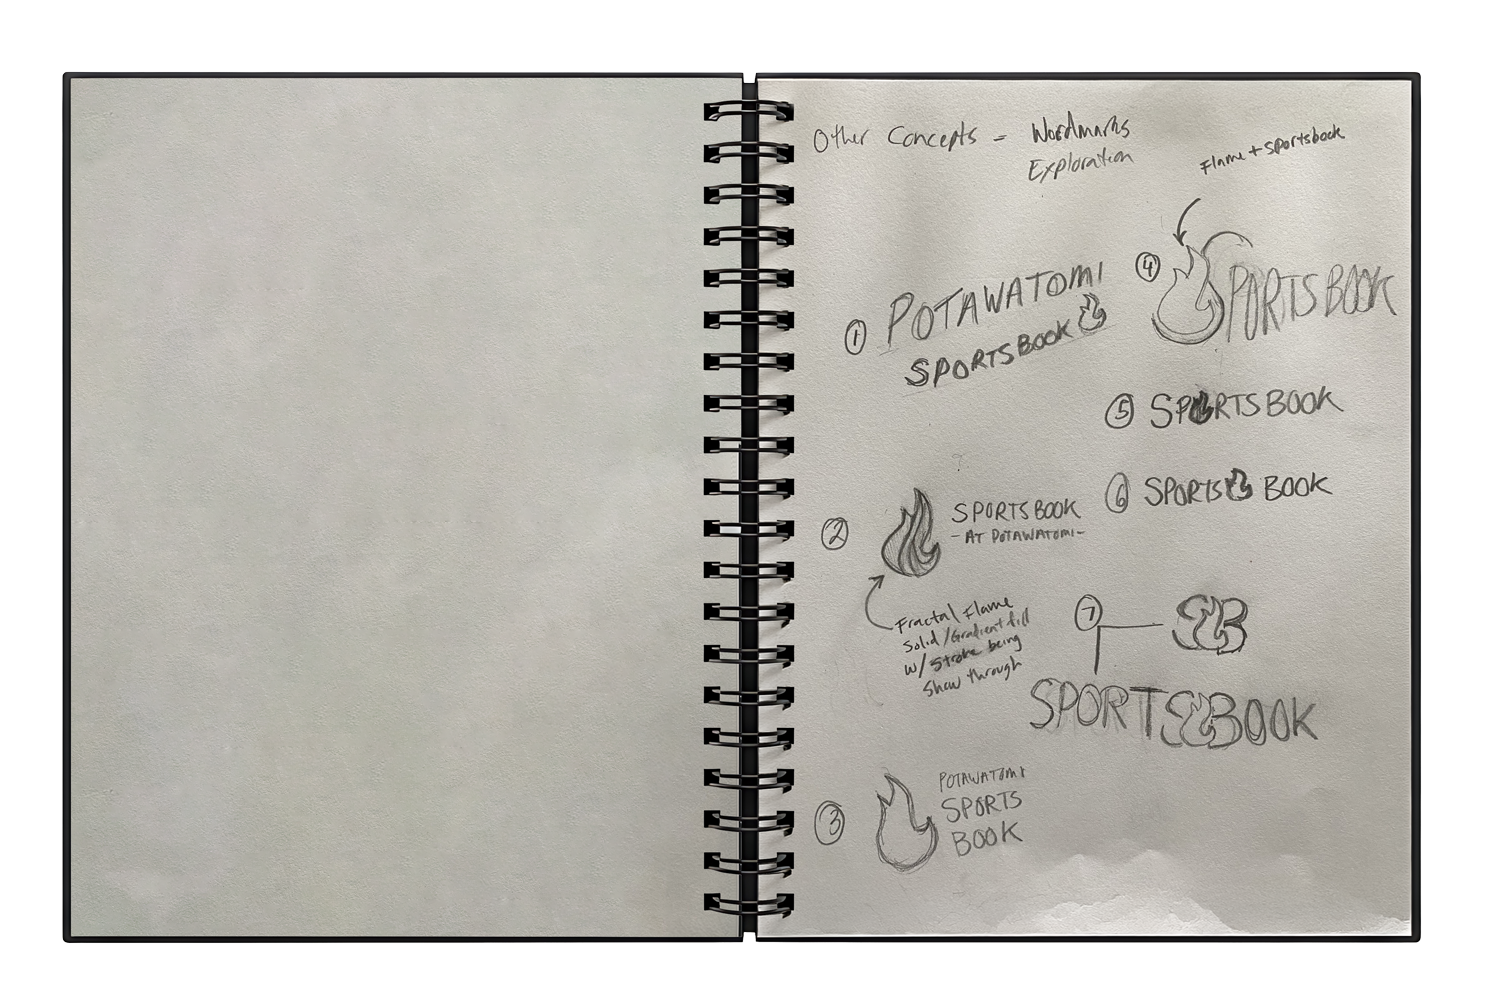 Other Concepts - Wordmarks
Exploration
Flame + Sportsbook
① POTAWATOMI
SPORTSBOOK
④ SPORTSBOOK
⑤ SPORTSBOOK
⑥ SPORTS BOOK
② SPORTSBOOK
- AT POTAWATOMI -
Fractal Flame
Solid/Gradient fill
w/ Stroke being
Show through
⑦ SB
SPORTSBOOK
③ POTAWATOMI
SPORTS
BOOK